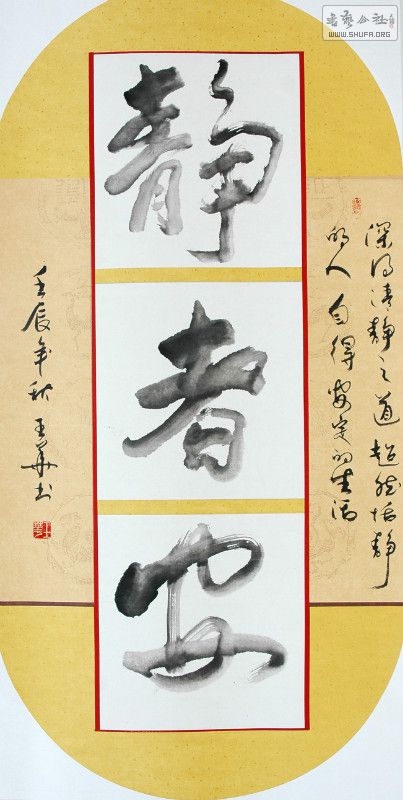 书艺公社
WWW.SHUFA.ORG
静
者
安
深得清静之道超然恬静
的人自得安定的生活
壬辰年秋王華书